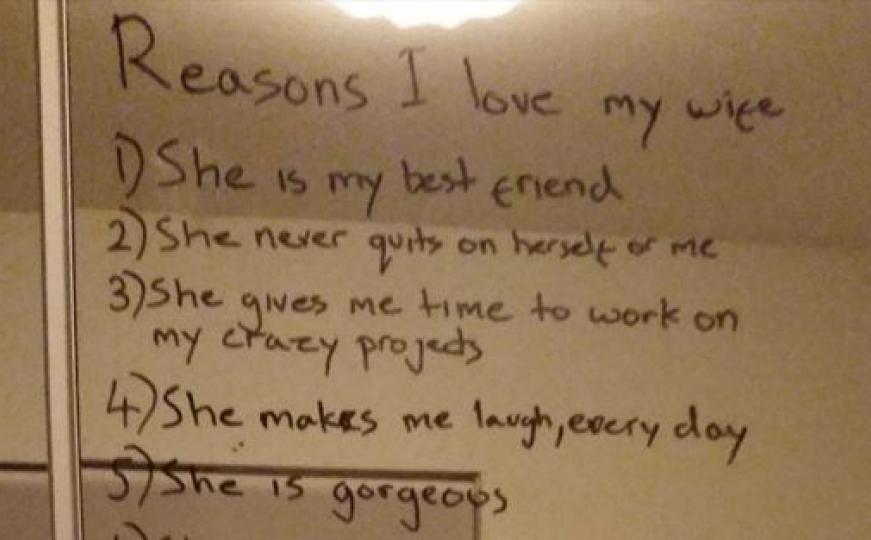 Reasons I love my wife
1) She is my best friend
2) She never quits on herself or me
3) She gives me time to work on
my crazy projects
4) She makes me laugh, every day
5) She is gorgeous